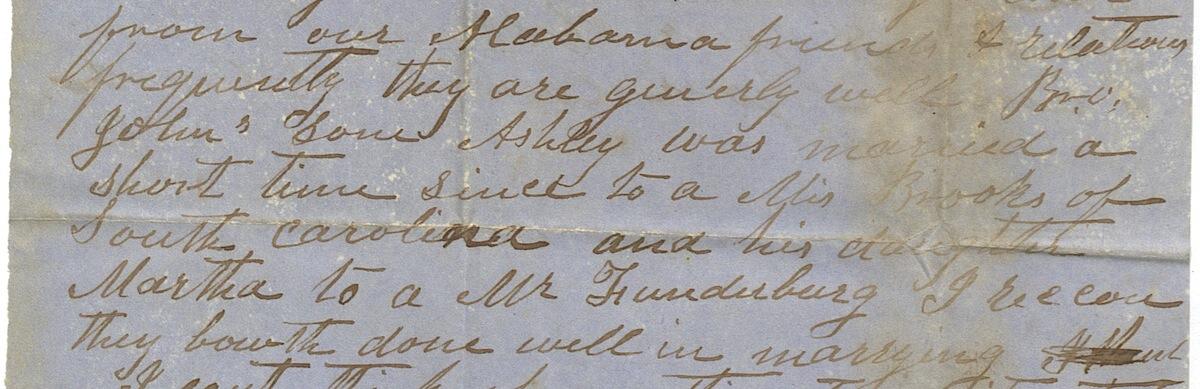 from our Alabama friends & relations
frequently they are generly well Bro.
John's Sone Ashley was maried a
short time since to a Mis Brooks of
South carolina and his daughter
Martha to a Mr Funderburg I reccon
they bowth done well in marrying
I cant think